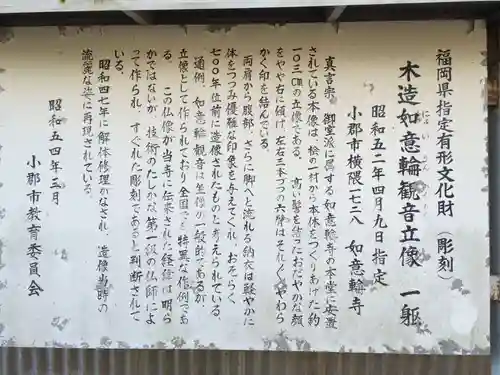 福岡県指定有形文化財（彫刻）
木造如意輪観音立像　一躯
にょいりんかんのん
昭和五二年四月九日指定
小郡市横隈一七二八　如意輪寺
真言宗　御室派に属する如意輪寺の本堂に安置
されている本像は、桧の一村から本体をつくりあげた約
一〇三㎝の立像である。高い髻を結ったおだやかな顔
をやや右に傾け、左右三本づつの六臂はそれぞれやわら
かく印を結んでいる。
両肩から腹部、さらに脚へと流れる衲衣は軽やかに
体をつつみ優雅な印象を与えてくれ、おそらく
七〇〇年位前に造像されたものと考えられている。
通例、如意輪観音は坐像が一般的であるが、
立像として作られており全国でも特異な作例であ
る。この仏像が当寺に伝来された経緯は明ら
かではないが、技術のたしかな第一級の仏師によ
って作られ、すぐれた彫刻であると判断されて
いる。
昭和四七年に解体修理がなされ、造像当時の
流麗な姿に再現されている。
昭和五四年三月
小郡市教育委員会